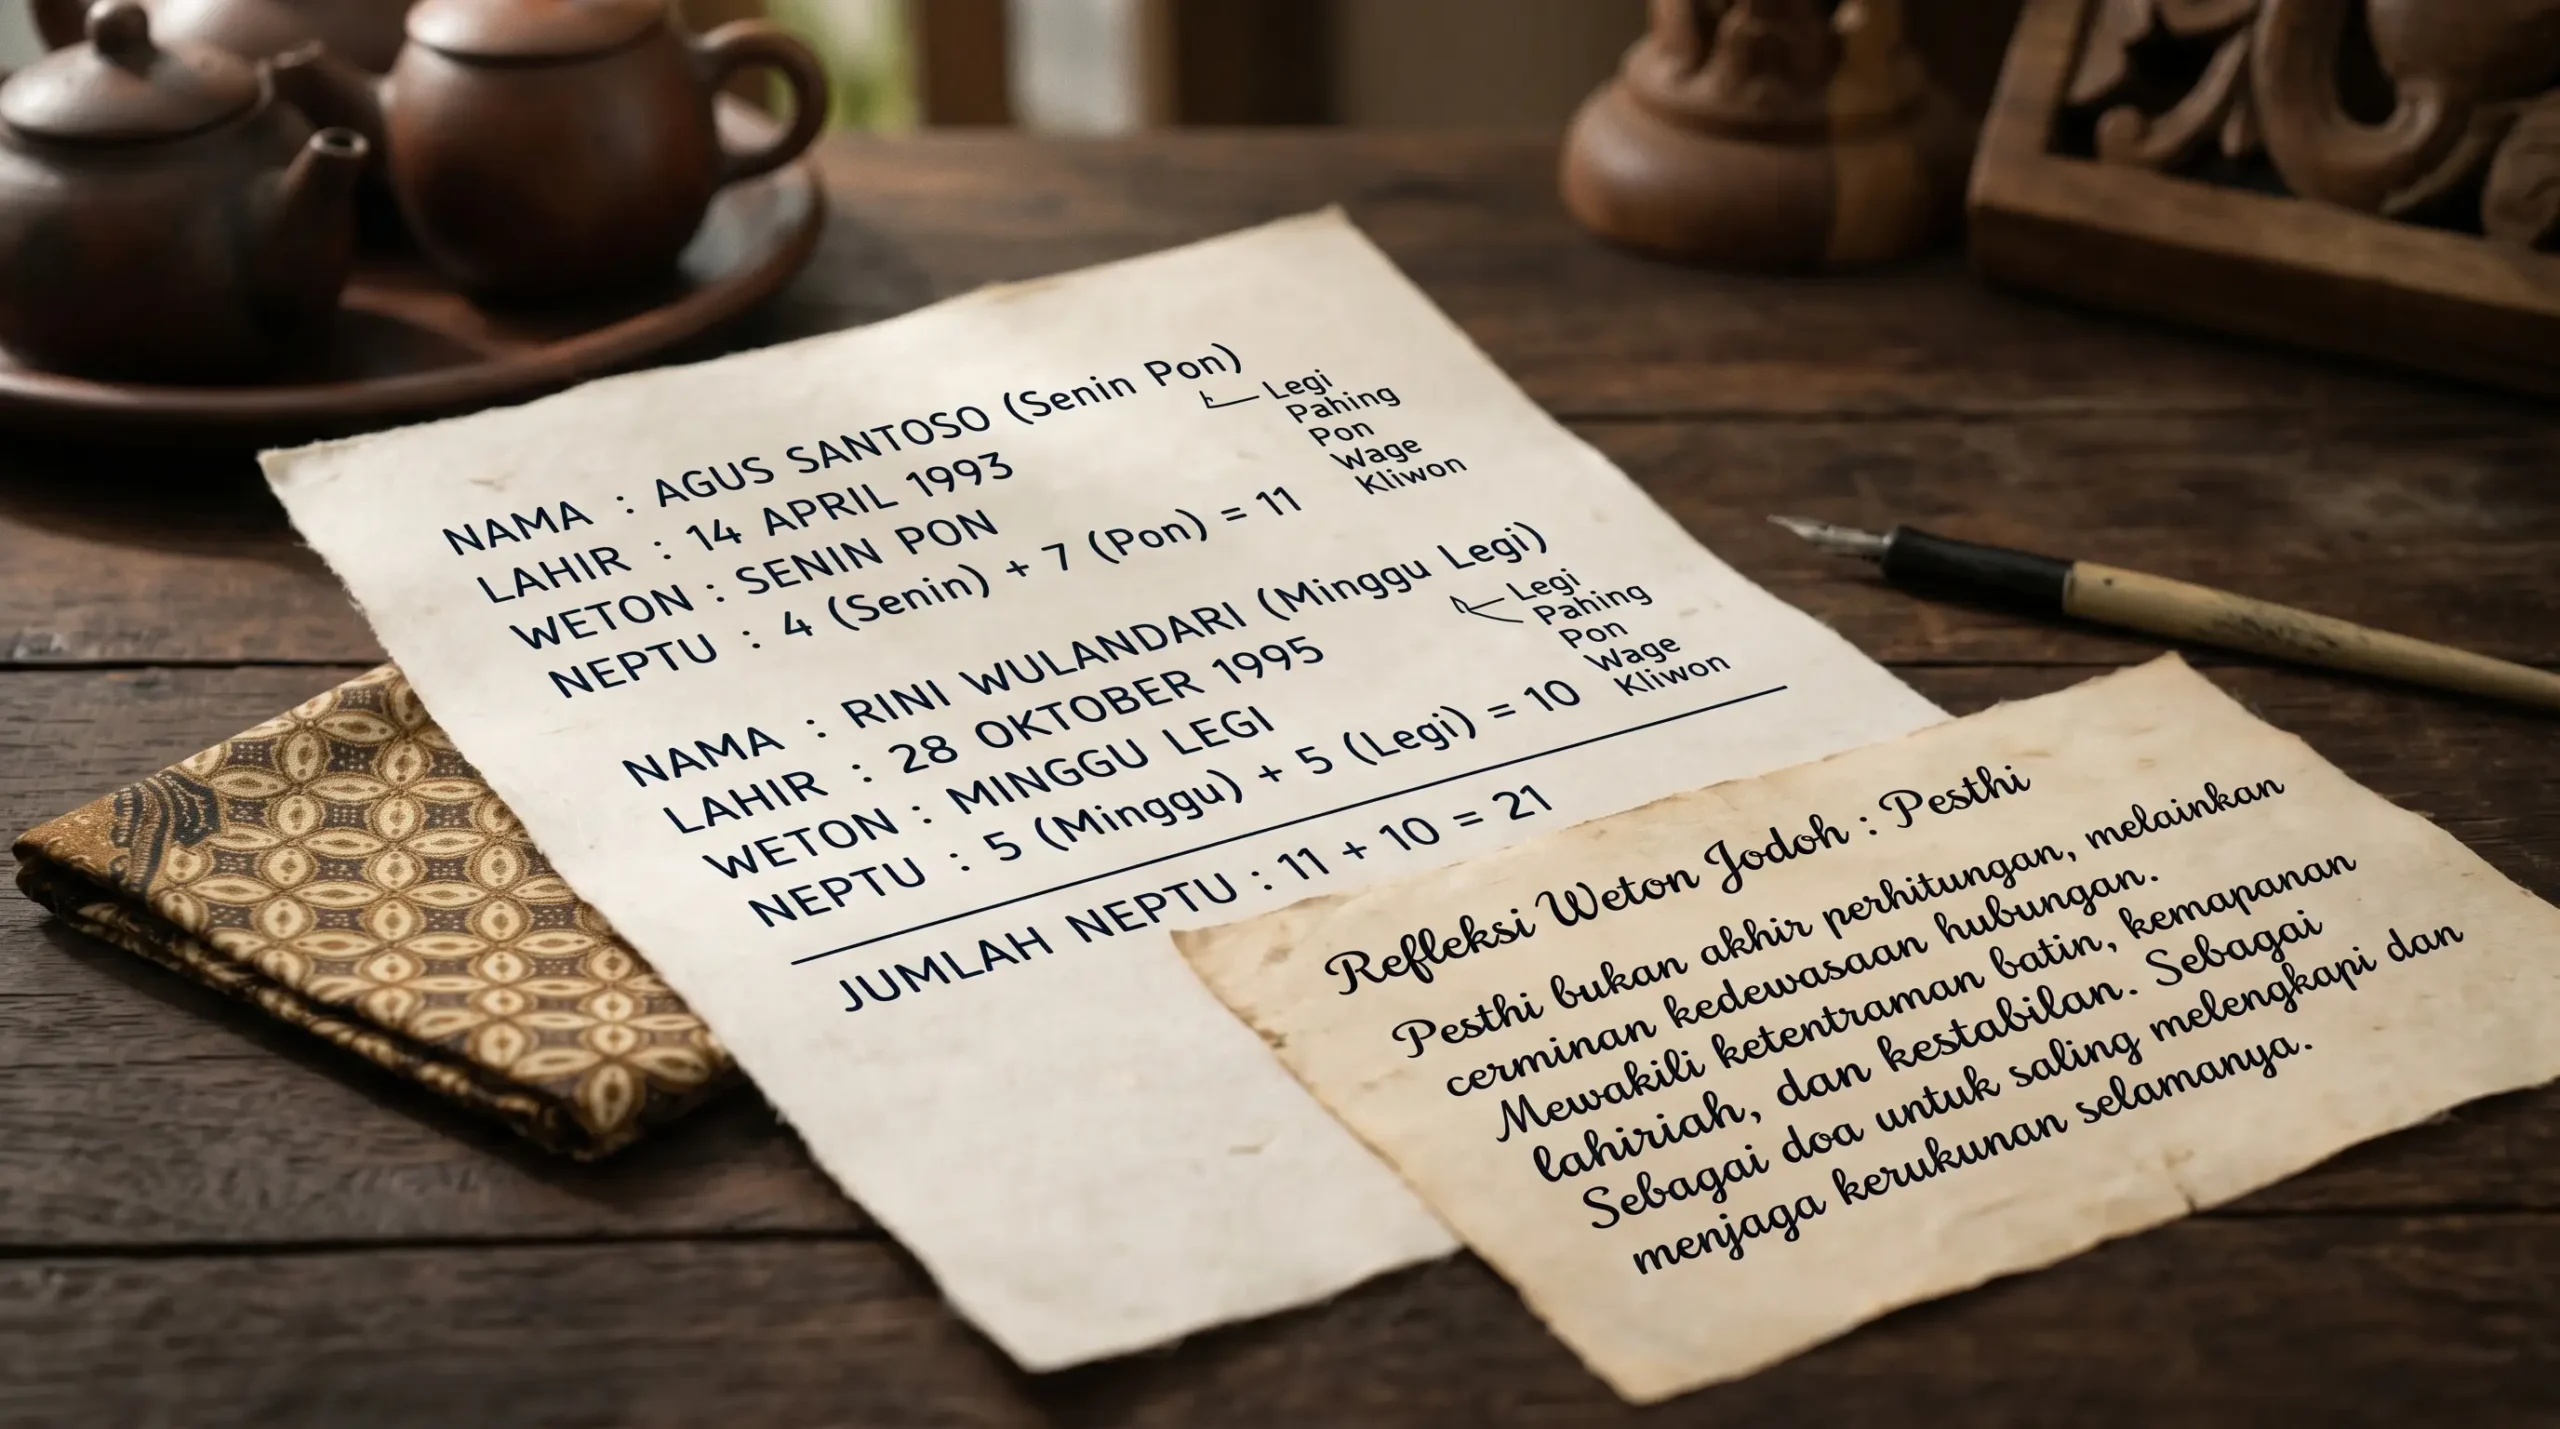 NAMA : AGUS SANTOSO (Senin Pon)
LAHIR : 14 APRIL 1993
WETON : SENIN PON
NEPTU : 4 (Senin) + 7 (Pon) = 11
Legi
Pahing
Pon
Wage
Kliwon
NAMA : RINI WULANDARI (Minggu Legi)
LAHIR : 28 OKTOBER 1995
WETON : MINGGU LEGI
NEPTU : 5 (Minggu) + 5 (Legi) = 10
Legi
Pahing
Pon
Wage
Kliwon
JUMLAH NEPTU : 11 + 10 = 21
Refleksi Weton Jodoh : Pesthi
Pesthi bukan akhir perhitungan, melainkan
cerminan kedewasaan hubungan.
Mewakili ketentraman batin, kemapanan
lahiriah, dan kestabilan. Sebagai
Sebagai doa untuk saling melengkapi dan
menjaga kerukunan selamanya.